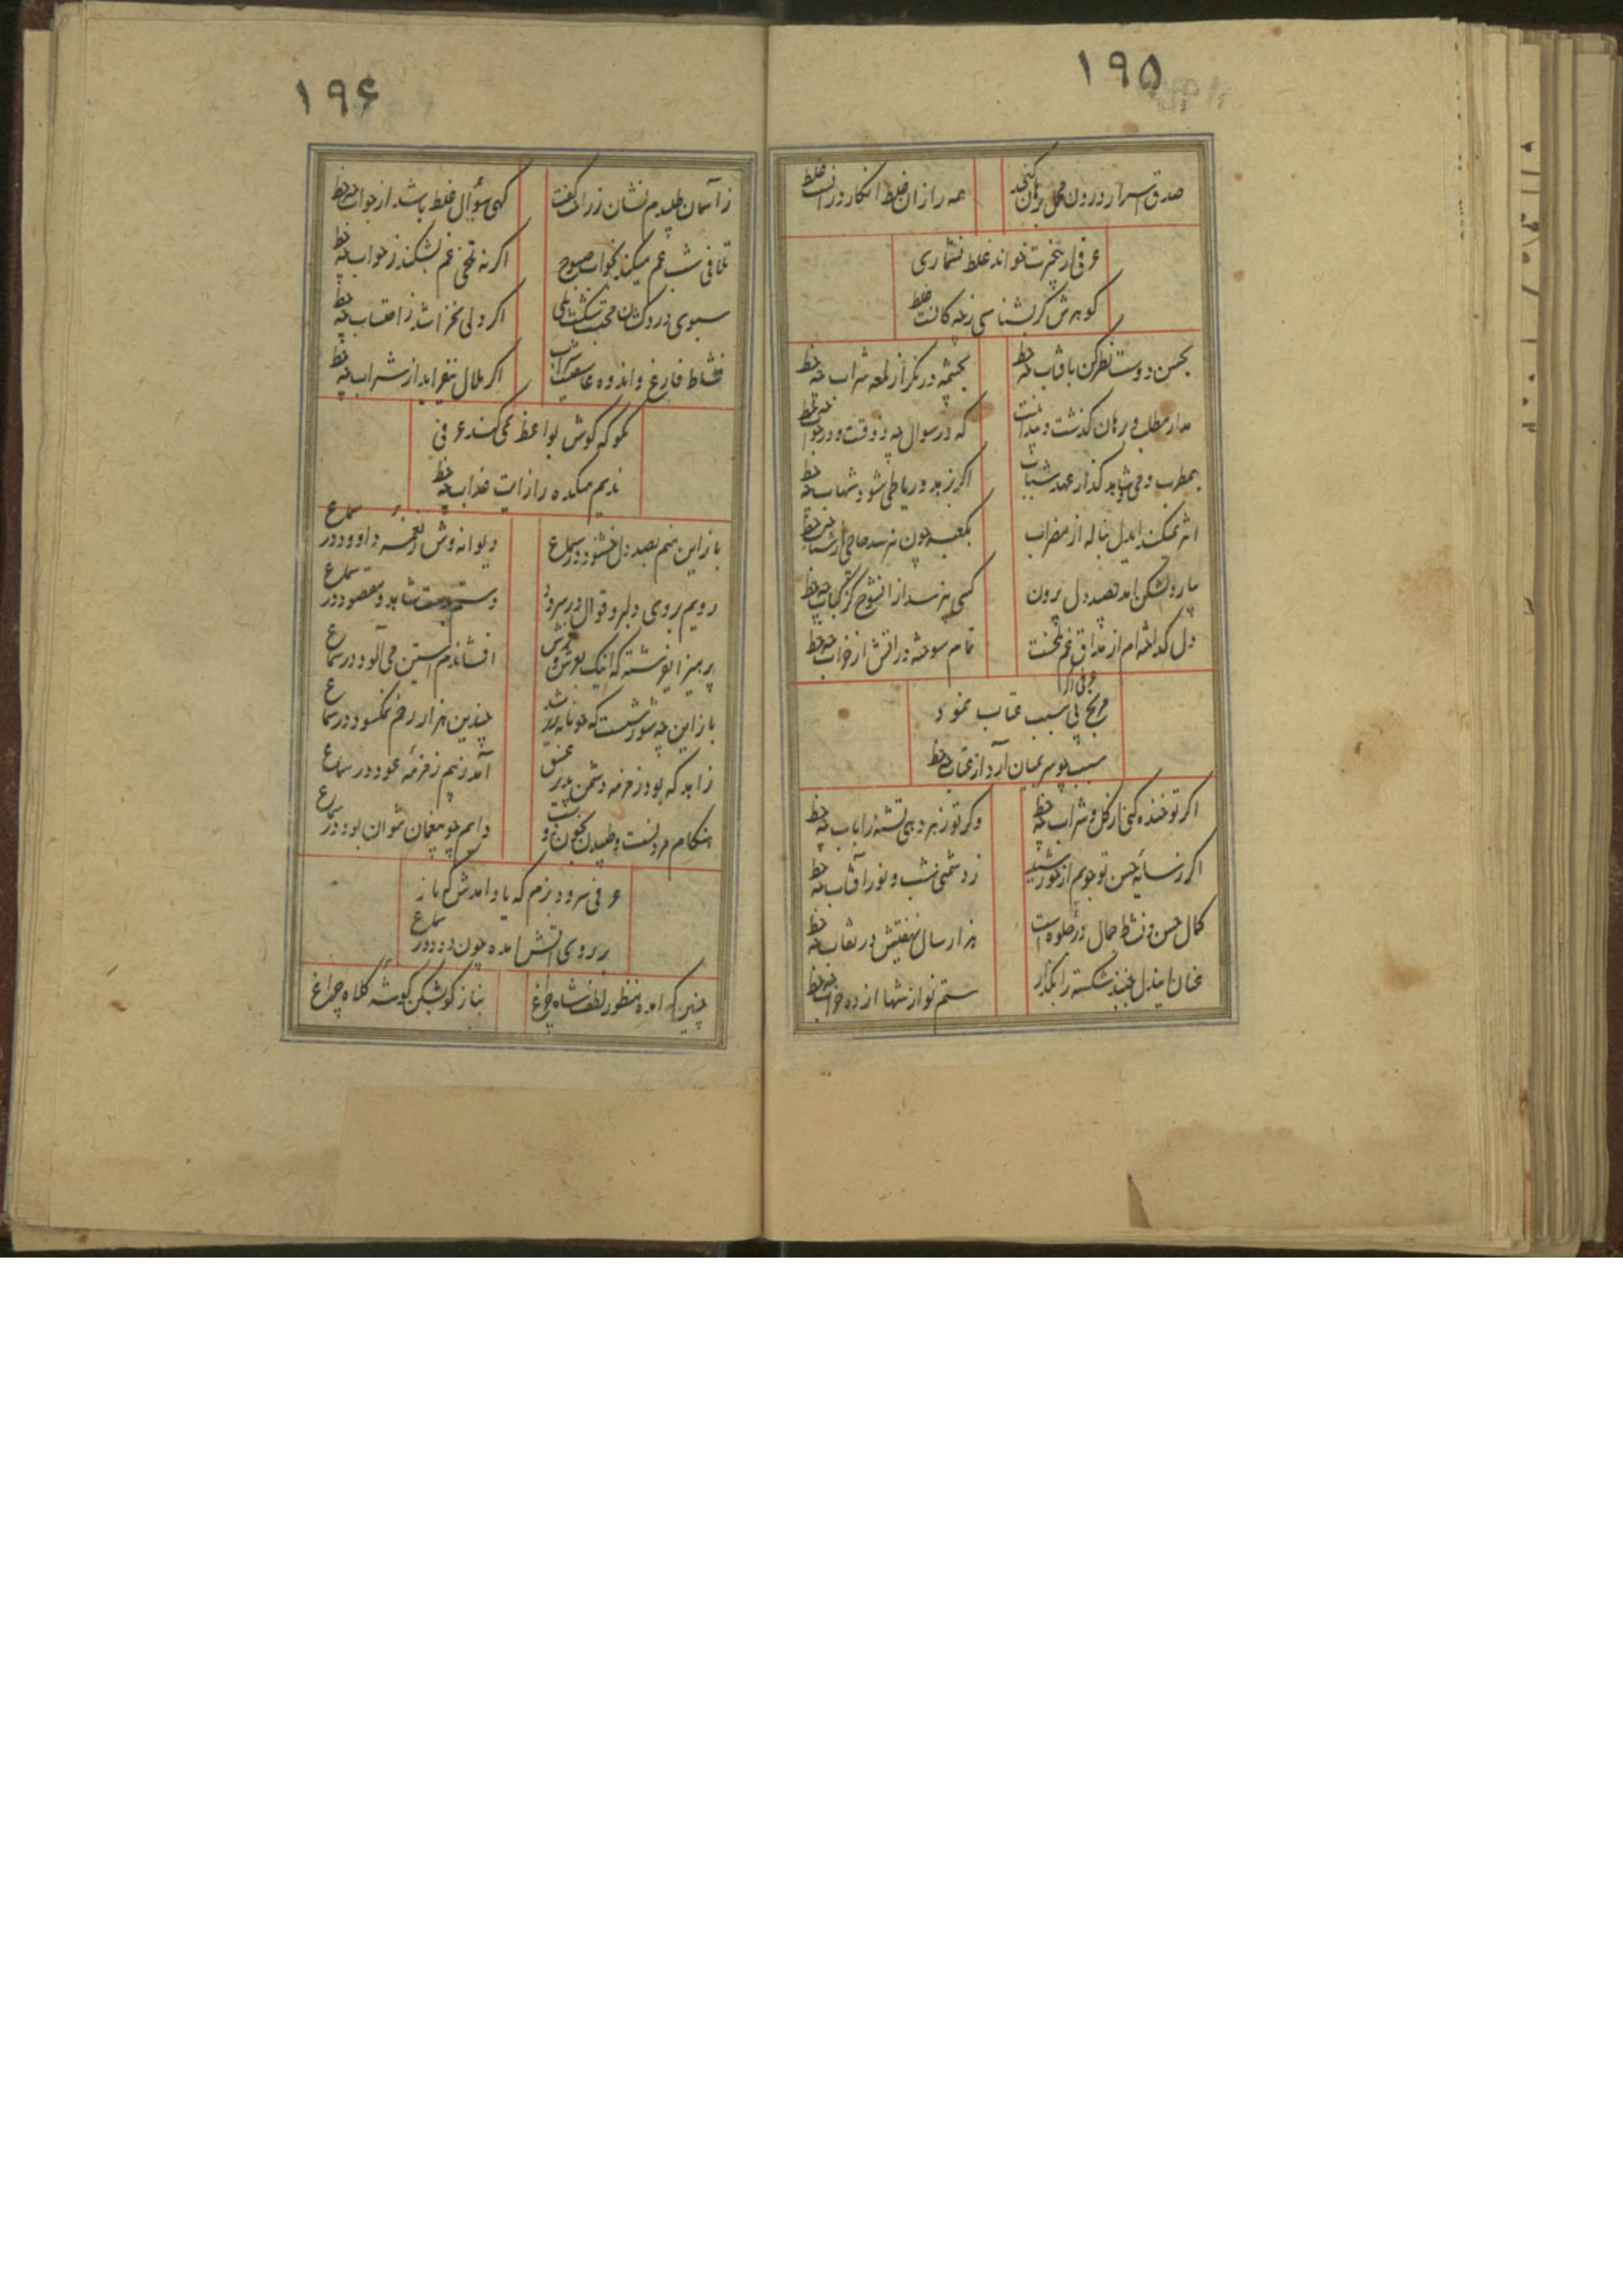 ۱۹۵
صدق اسرار درون محمل برهان
همه رازان غلط انکار در انست غلط
عرفی ار خواند غلط نشماری
کوهرش کر نشناسی ز چه کانست غلط
بحسن دوست نظر کن باقاب چه حظ
بچشمه در نکر از لمعه سراب چه حظ
مدار مطلب و برهان کذشت و
که در سوال چه ذوقست و در جواب چه حظ
بمطرب و می و شاهد کذار عهد شباب
اکر زهد و ریا طی شود شباب چه حظ
اثر نمیکند ایدل بناله از مضراب
بکعبه چون نرسد حاجی از شتاب چه حظ
بصید دل بیرون
کسی نپرسد از انشوخ کز کباب چه حظ
دل کداخته ام از مذاق غم
تمام سوخته در اتش از خراب چه حظ
مرنج بی سبب عتاب نمود
سبب چو سر بمیان آرد از عتاب چه حظ
اکر تو خنده کنی از کل و شراب چه حظ
وکر تو زهر دهی تشنه را باب چه حظ
اکر ز سایه حسن تو جویم از خورشید
ز دشمنی شب و نور آفتاب چه حظ
کمال حسن و نشاط جمال در جلوه است
هزار سال نهفتیش در نقاب چه حظ
عنان ایندل شکسته را بکذار
ستم نواز شها از ده خراب چه حظ
۱۹۶
ز آسمان طلبیدم نشان ز راه کفت
کهی سؤال غلط باشد از جواب چه حظ
تلافی شب غم میکند بخواب صبوح
اکر نه تلخی غم بشکند ز خواب چه حظ
سبوی دردکشان محتسب شکست ولی
اکر دلی نخراشد ز احتساب چه حظ
نشاط فارغ و اندوه عافیت
اکر ملال نیفزاید از شراب چه حظ
مکو که کوش بواعظ نمی کند عرفی
ندیم میکده را ز ایت عذاب چه حظ
باز این منم بصد دل خشنود در سماع
دیوانه وش ز نغمه داوود در سماع
رویم بروی دلبر و قوال در سرود
دستم بدست شاهد مقصود در سماع
پرهیز ایفرشته که اینک بعرش و فرش
افشاندم آستین می آلود در سماع
باز این چه شورشست که خونابه ریز شد
چندین هزار زخم نمکسود در سماع
زاهد که بود ز زمزمه دشمن
آمد زنیم زمزمه عود در سماع
هنکام مردنست و طپیدن بخون
دایم چو بیغمان نتوان بود در سماع
عرفی سرود بزم که یاد امدش که باز
بر روی اتش امده چون دود در سماع
چنین که امده منظور لطف شاه چراغ
بناز کو بشکن کوشه کلاه چراغ